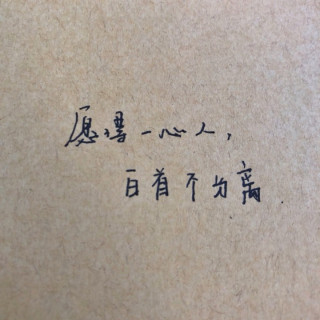 愿得一心人，
白首不分离